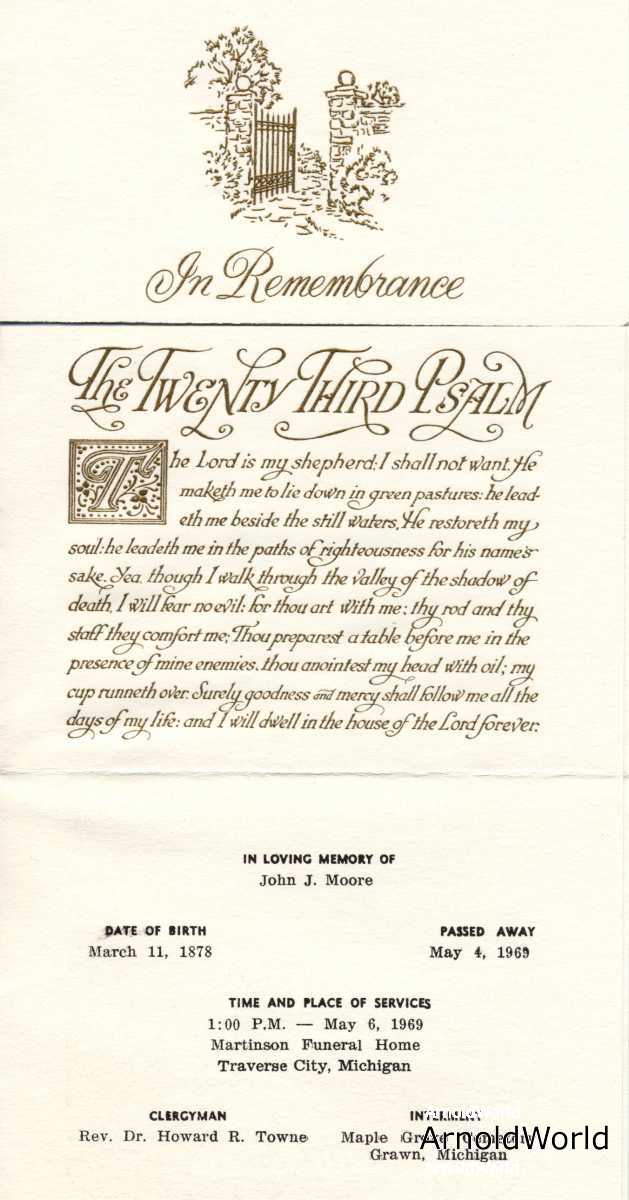 In Remembrance
The Twenty Third Psalm
The Lord is my shepherd; I shall not want. He
maketh me to lie down in green pastures: he lead-
eth me beside the still waters, He restoreth my
soul: he leadeth me in the paths of righteousness for his name's
sake. Yea, though I walk through the valley of the shadow of
death, I will fear no evil: for thou art with me; thy rod and thy
staff they comfort me; Thou preparest a table before me in the
presence of mine enemies. thou anointest my head with oil; my
cup runneth over. Surely goodness and mercy shall follow me all the
days of my life: and I will dwell in the house of the Lord forever.
IN LOVING MEMORY OF
John J. Moore
DATE OF BIRTH PASSED AWAY
March 11, 1878 May 4, 1969
TIME AND PLACE OF SERVICES
1:00 P.M. — May 6, 1969
Martinson Funeral Home
Traverse City, Michigan
CLERGYMAN INTERMENT
ArnoldWorld
Rev. Dr. Howard R. Towne Maple Grove Cemetery
ArnoldWorld
Grawn, Michigan
ArnoldWorld